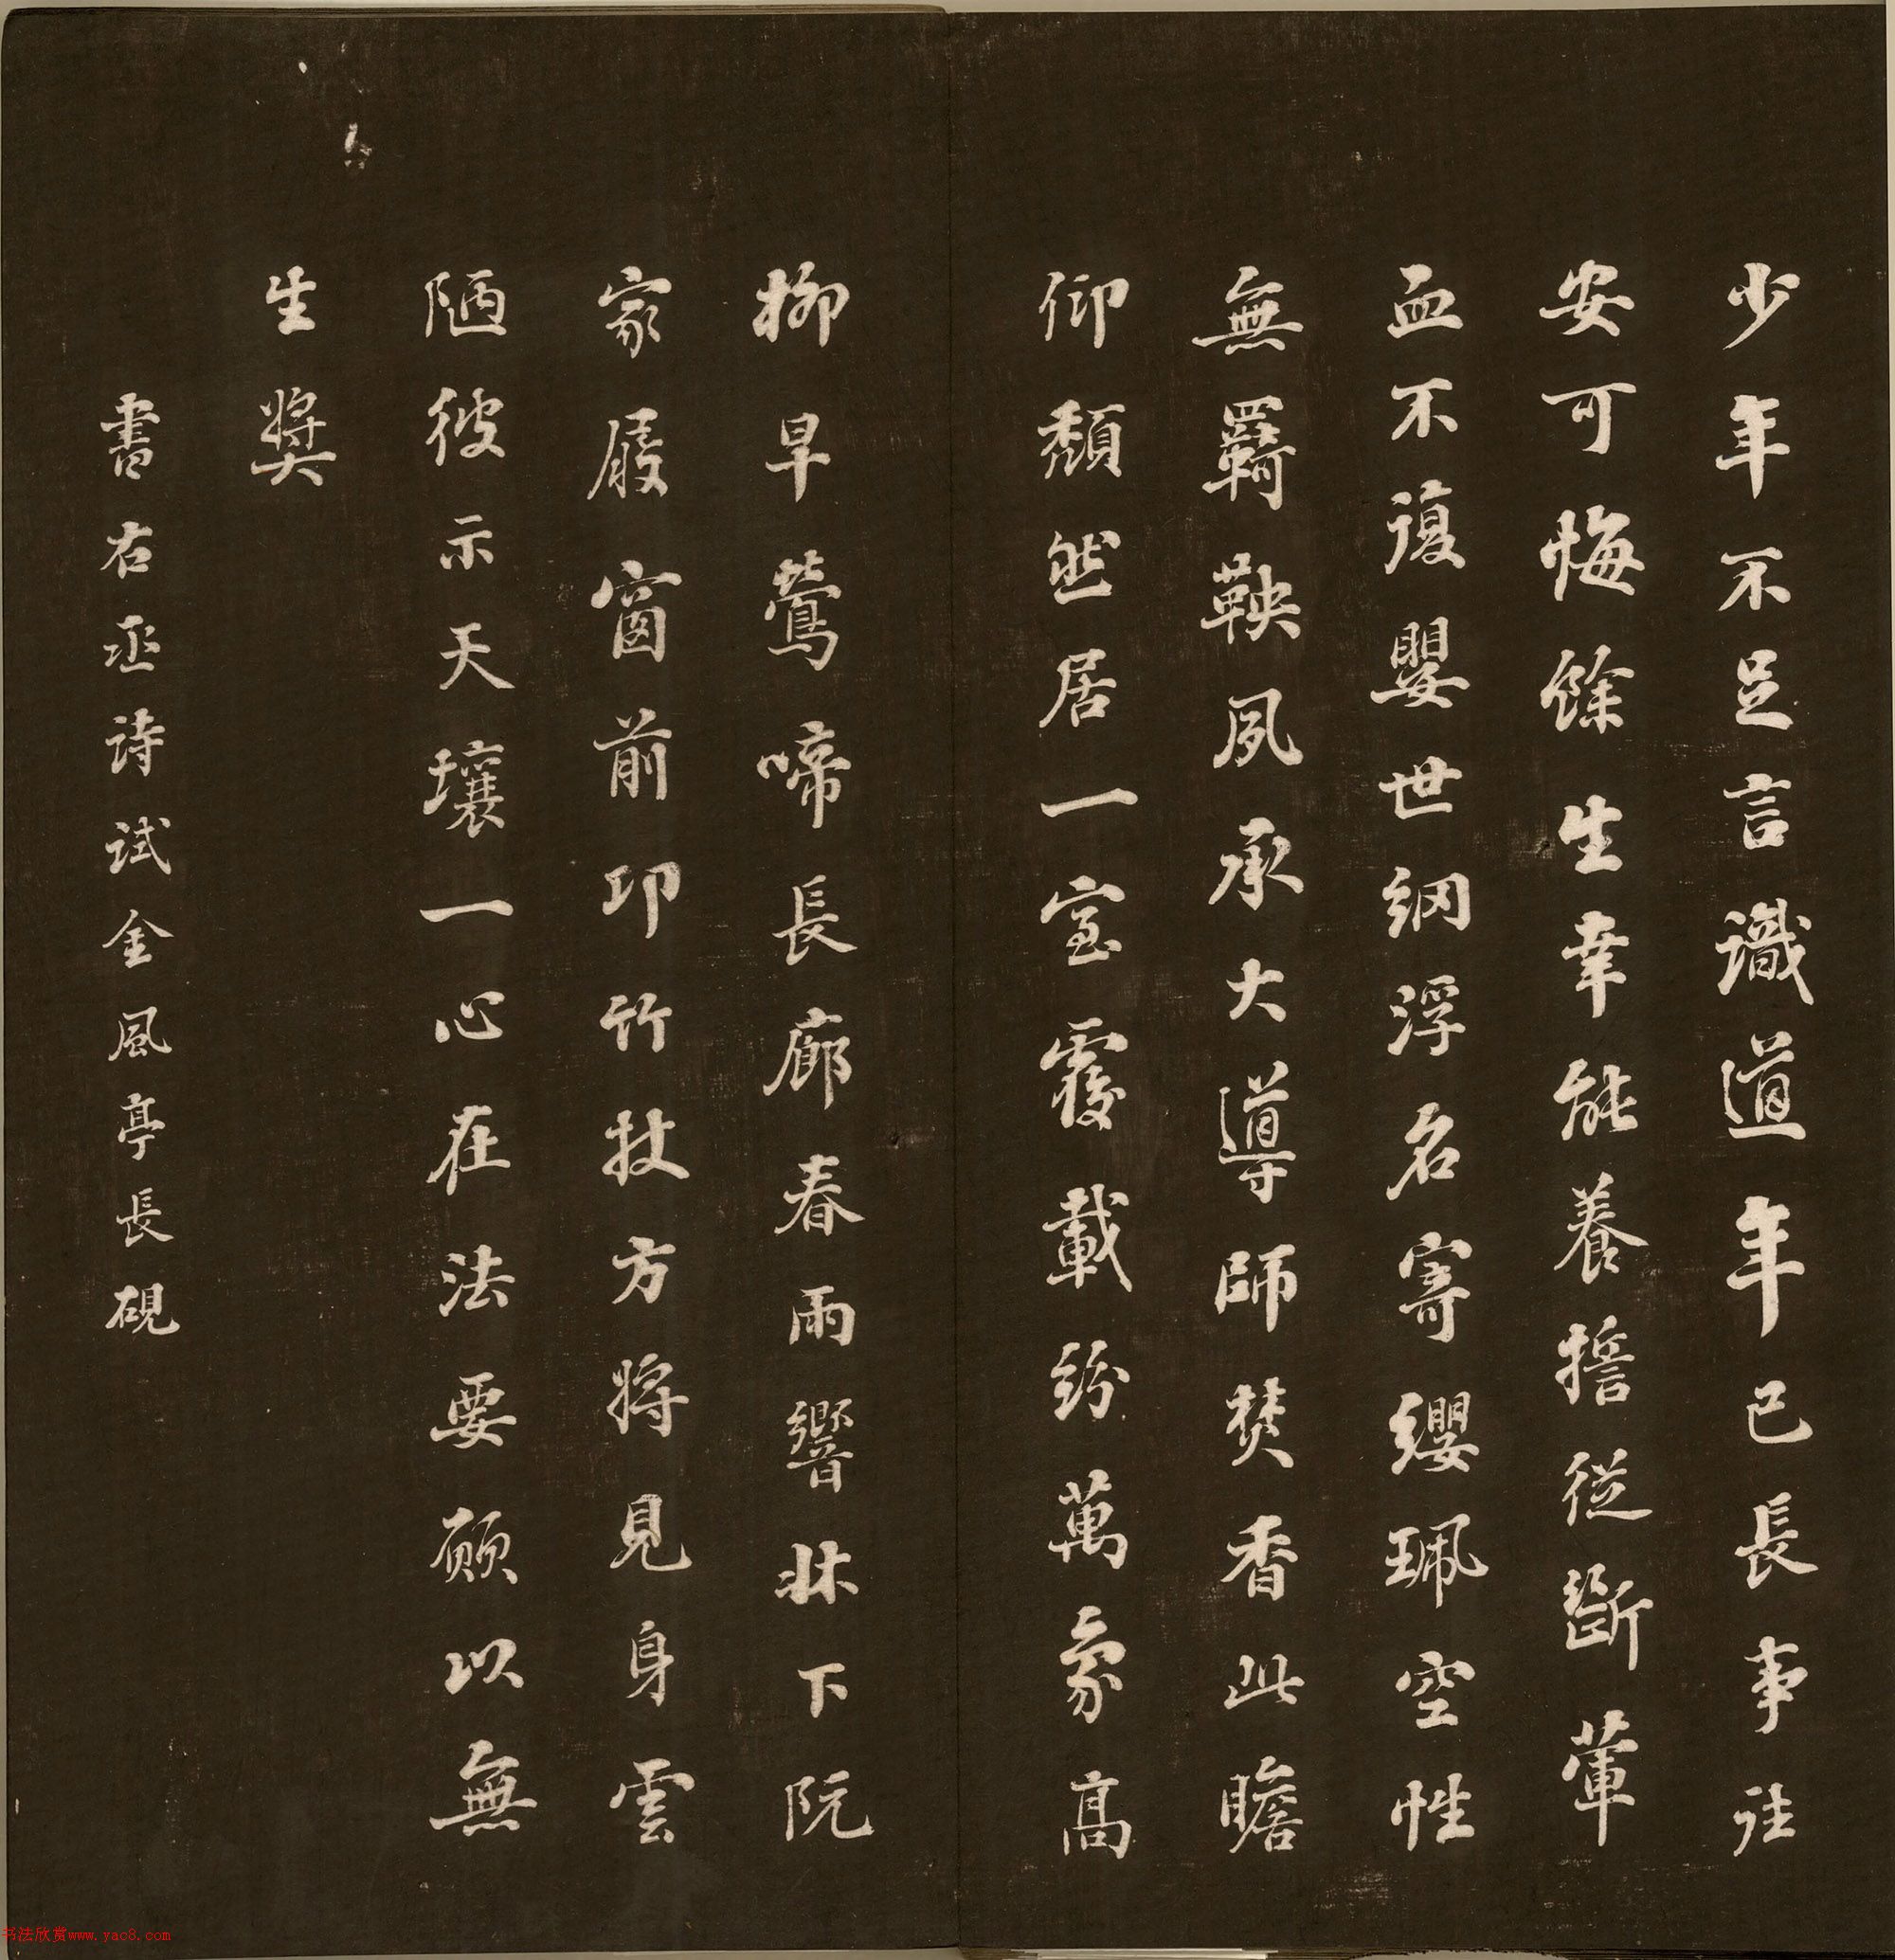 少年不足言識道年已長事往
安可悔餘生幸能養誓從斷葷
血不復嬰世網浮名寄纓珮空性
無羈鞅夙承大導師焚香此瞻
仰頹然居一室覆載紛萬象高
柳早鶯啼長廊春雨響牀下阮
家屐窗前邛竹杖方將見身雲
陋彼示天壤一心在法要願以無
生獎
書右丞詩試金風亭長硯
书法欣赏www.yac8.com